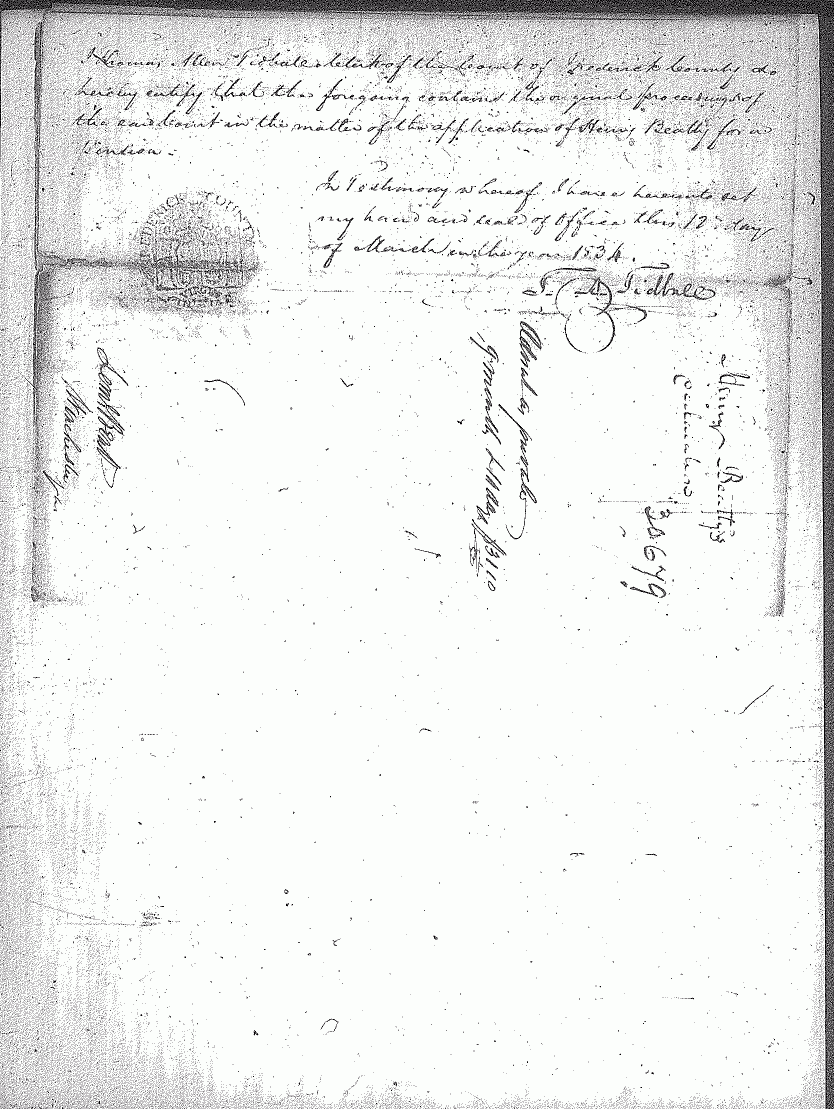 I Thomas Allen Tidball clerk of the Court of Frederick County do
hereby certify that the foregoing contains the original proceedings of
the said Court in the matter of the application of Henry Beatty for a
Pention.
In Testimony whereof I have hereunto set
my hand and seal of Office this 12 day
of March in the year 1834.
T. A. Tidball
FREDERICK COUNTY
Henry Beatty's
declaration
30679
Admit as private
9 months & 11 days $31 10
Winchester